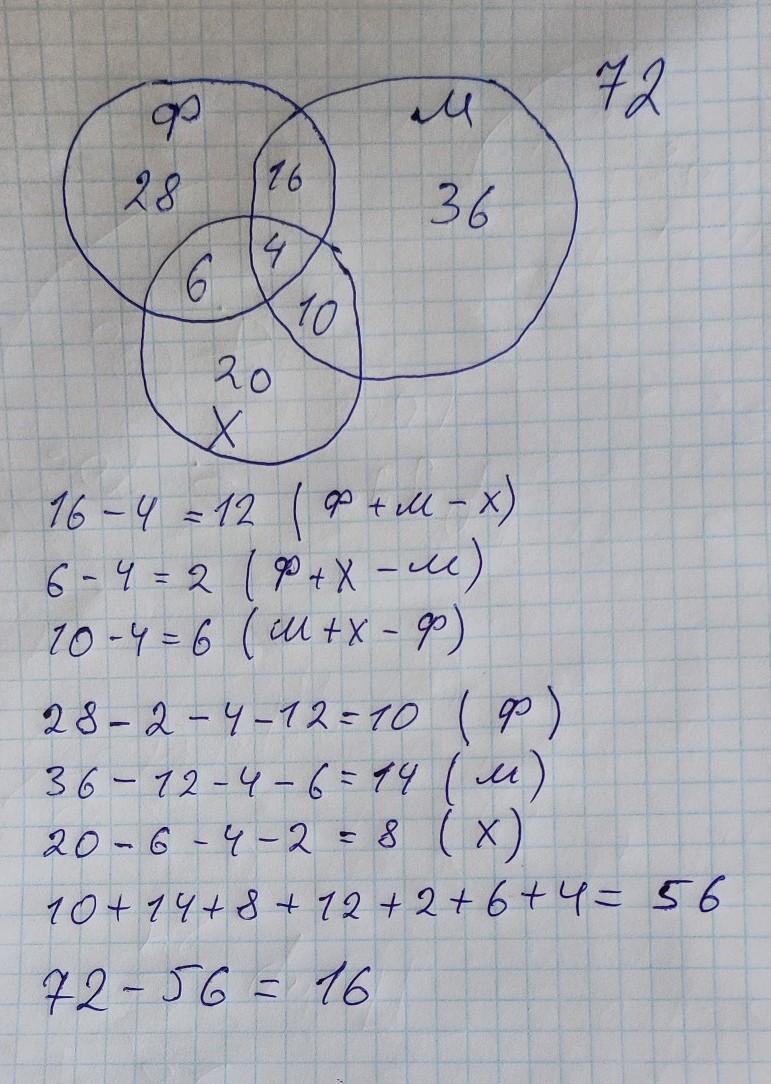 72
Ф М
28 16 36
6 4
10
20
Х
16 - 4 = 12 ( Ф + М - Х )
6 - 4 = 2 ( Ф + Х - М )
10 - 4 = 6 ( М + Х - Ф )
28 - 2 - 4 - 12 = 10 ( Ф )
36 - 12 - 4 - 6 = 14 ( М )
20 - 6 - 4 - 2 = 8 ( Х )
10 + 14 + 8 + 12 + 2 + 6 + 4 = 56
72 - 56 = 16